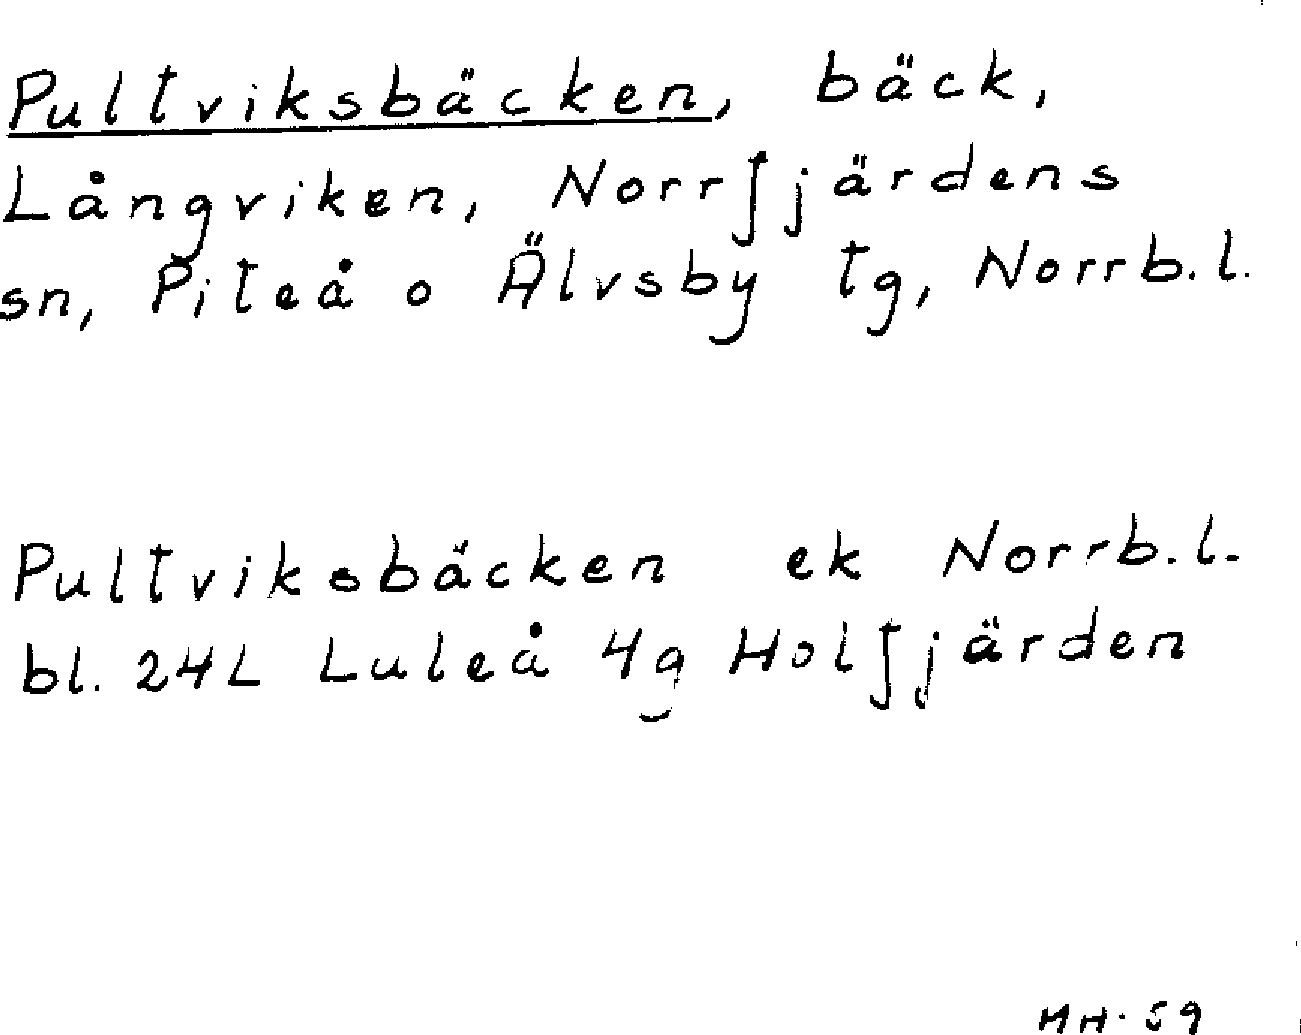 Pultviksbäcken, bäck,
Långviken, Norrfjärdens
sn, Piteå o Älvsby tg, Norrb.l.
Pultviksbäcken ek Norrb.l.
bl. 24L Luleå 4g Holfjärden
MH. 59